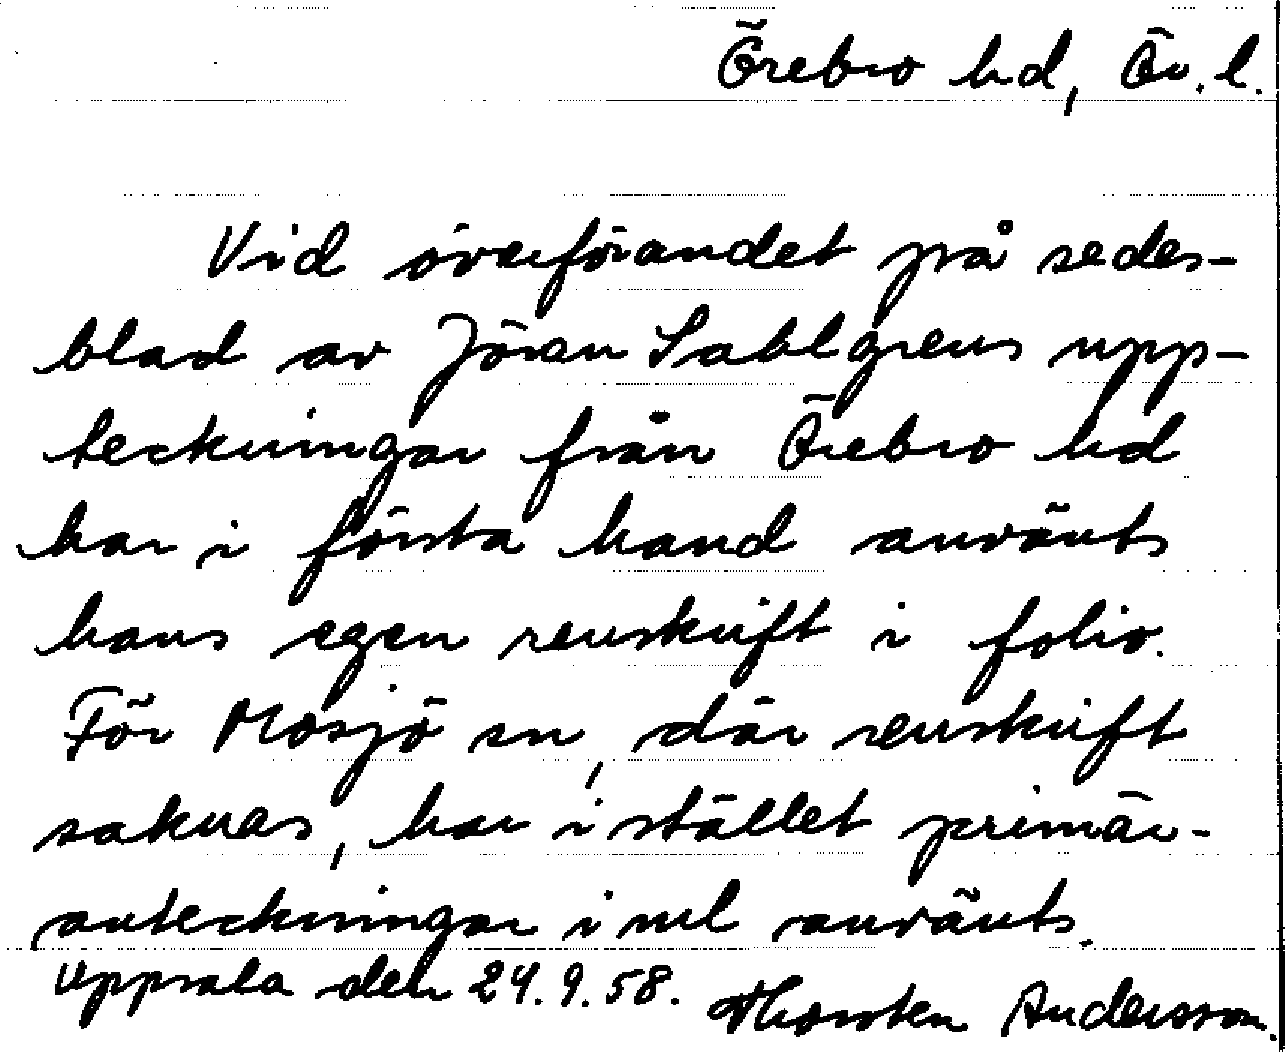 Örebro hd, Ör. l.
Vid överförandet på sedes-
blad av Jöran Sahlgrens upp-
teckningar från Örebro hd
har i första hand använts
hans egen renskrift i folio.
För Mosjö sn, där renskrift
saknas, har i stället primär-
anteckningar i md använts.
Uppsala den 24.9.58. Thorsten Andersson.